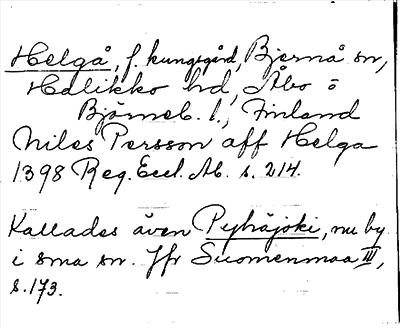 Helgå, f. kungsgård, Bjernå sn,
Halikko hd, Åbo o
Björneb. l., Finland
Niles Persson aff Helga
1398 Reg. Eccl. Ab. s. 214.
Kallades även Pyhäjoki, nu by
i sma sn. Jfr Suomenmaa III,
s. 173.